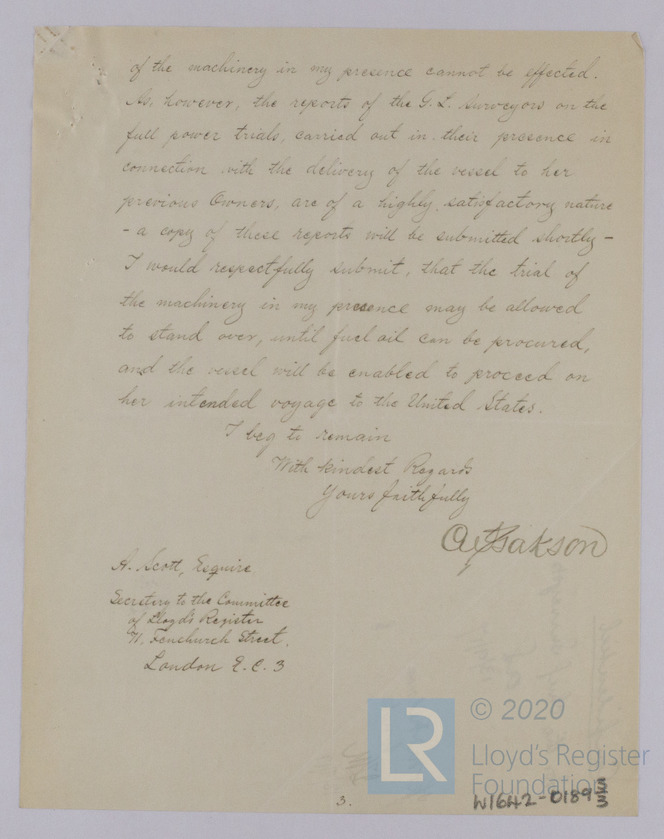 of the machinery in my presence cannot be effected.
As, however, the reports of the G. L. surveyors on the
full power trials, carried out in their presence in
connection with the delivery of the vessel to her
previous Owners, are of a highly satisfactory nature
- a copy of these reports will be submitted shortly -
I would respectfully submit, that the trial of
the machinery in my presence may be allowed
to stand over, until fuel oil can be procured,
and the vessel will be enabled to proceed on
her intended voyage to the United States.
I beg to remain
With kindest Regards
Yours faithfully
A. Scott, Esquire
Secretary to the Committee
of Lloyd's Register
71, Fenchurch Street,
London E.C. 3
3.
LR
© 2020
Lloyd's Register
Foundation
W1642-0189 3/3